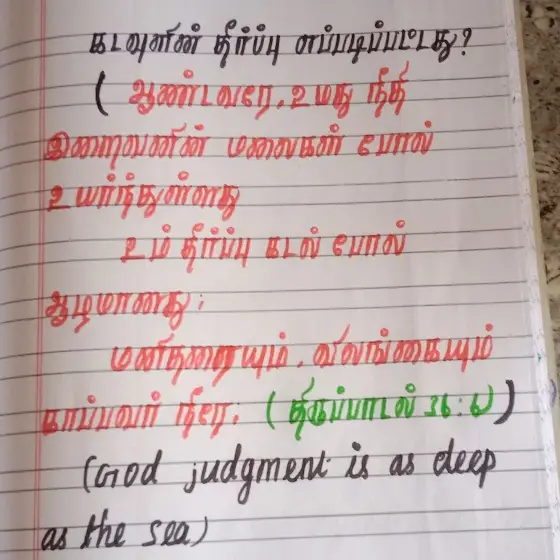 கடவுளின் தீர்ப்பு எப்படிப்பட்டது?
( ஆண்டவரே, உமது நீதி
இறைவனின் மலைகள் போல்
உயர்ந்துள்ளது
உம் தீர்ப்பு கடல் போல்
ஆழமானது;
மனிதரையும், விலங்கையும்
காப்பவர் நீரே. (திருப்பாடல் 36:6))
(God judgment is as deep
as the sea)